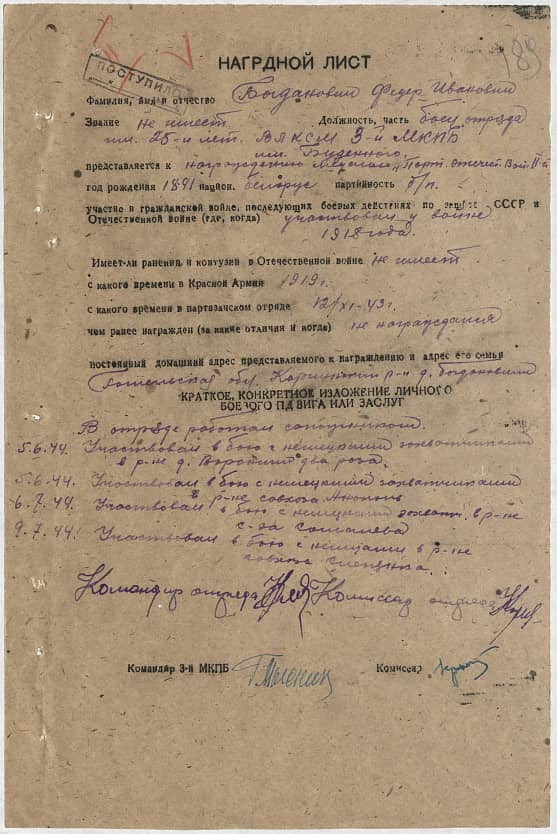 НАГРДНОЙ ЛИСТ
ПОСТУПИЛО
Фамилия, имя и отчество Богданович Федор Иванович
Звание не имеет. Должность, часть боец отряда
им. 25-и лет. ВЛКСМ 3-й МКПБ
им. Буденного.
представляется к награждению Медалью "Парт. Отечест. Вой. II ст
год рождения 1891 национ. белорус партийность б/п.
участие в гражданской войне, последующих боевых действиях по защите СССР и
Отечественной войне (где, когда) участвовал у войне
1918 года.
Имеет-ли ранения, и контузии в Отечественной войне не имеет.
с какого времени в Красной Армии 1919 г.
с какого времени в партизанском отряде 12/XI-43 г.
чем ранее награжден (за какие отличия и когда) не награждался
постоянный домашний адрес представляемого к награждению и адрес его семьи
обл. р-н д. Богдановичи
КРАТКОЕ, КОНКРЕТНОЕ ИЗЛОЖЕНИЕ ЛИЧНОГО
БОЕВОГО П ДВИГА ИЛИ ЗАСЛУГ
В отряде работал сапожником.
5.6.44. Участвовал в бою с немецкими захватчиками
в р-не д. два рога.
5.6.44. Участвовал в бою с немецкими захватчиками
в р-не совхоза
6.7.44. Участвовал в бою с немецкими захват. в р-не
с-за
9.7.44. Участвовал в бою с немцами в р-не
совхоза
Командир отряда Комиссар отряда
Командир 3-й МКПБ Комиссар